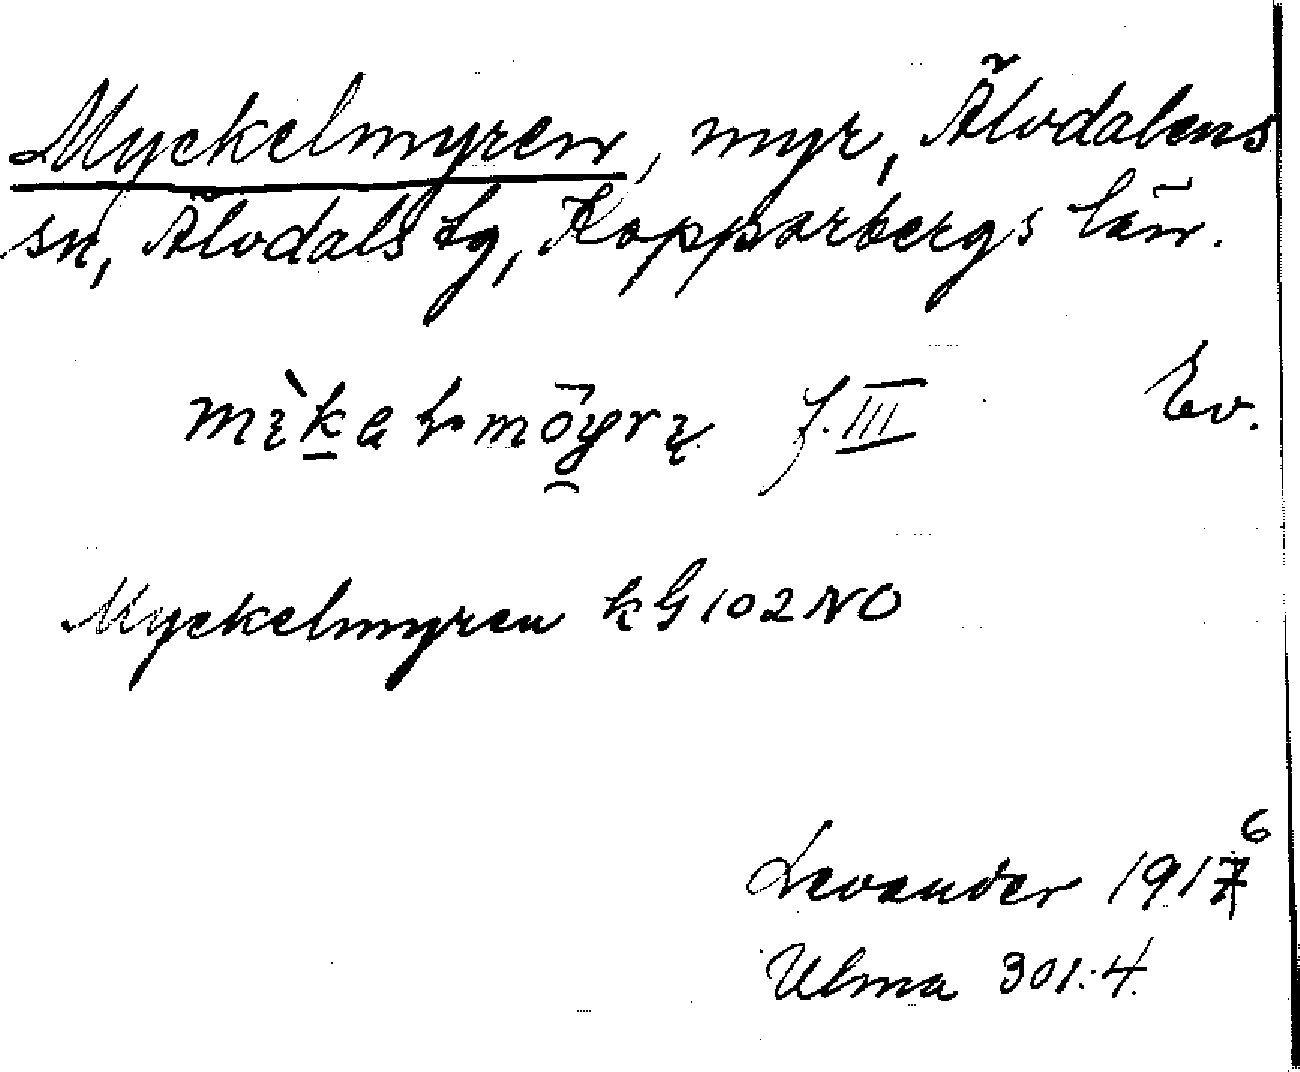 Myckelmyren, myr, Älvdalens
sn, Älvdals tg, Kopparbergs län.
f. III Ev.
Myckelmyren kG 102 NO
Levander 1916
Ulma 301:4